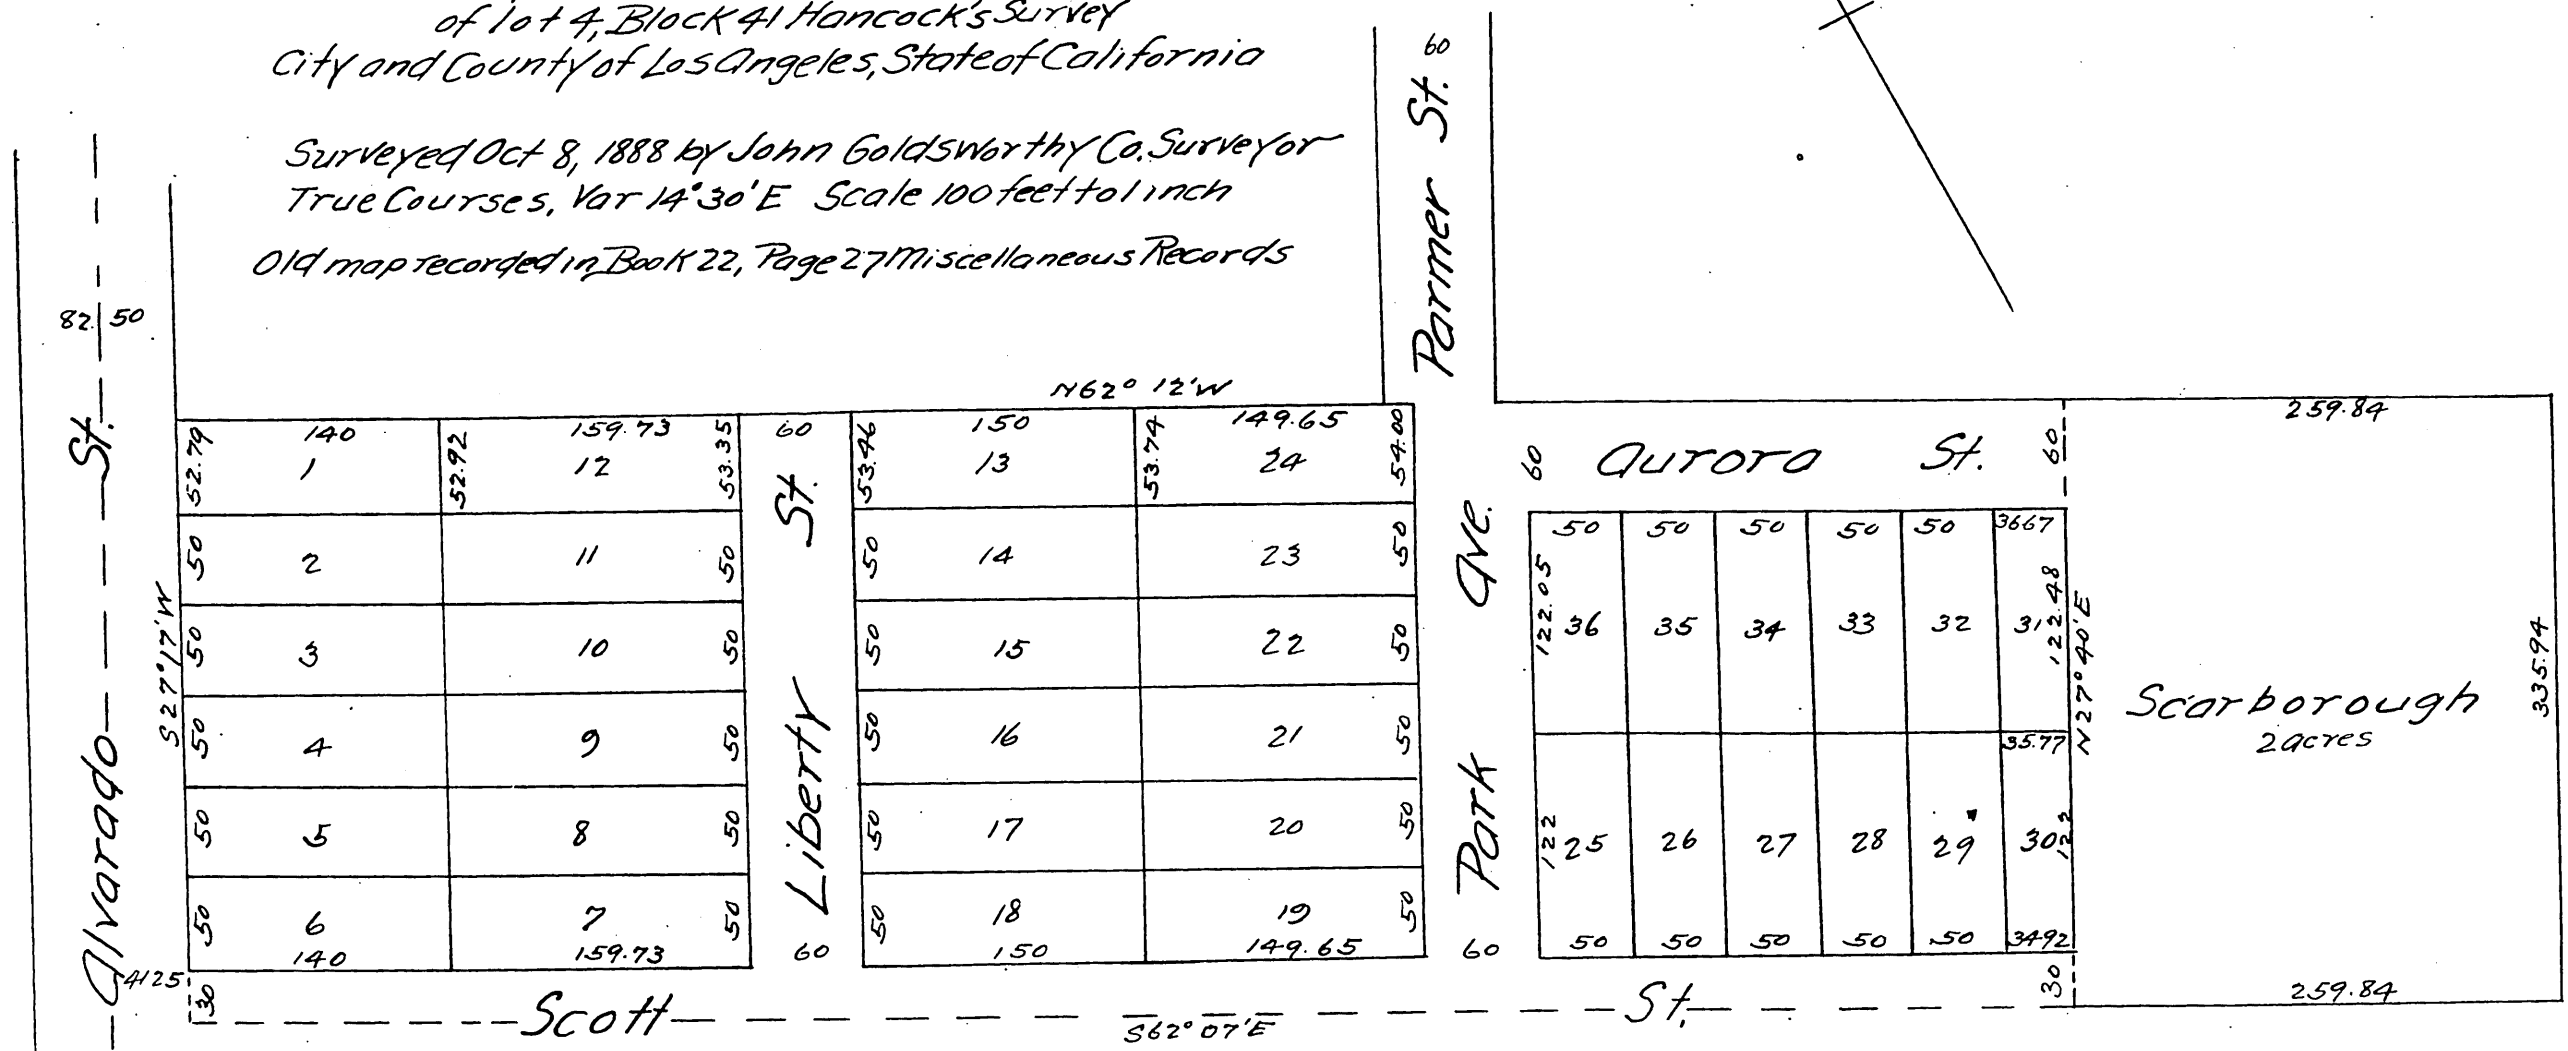 of lot 4, Block 41 Hancock's Survey
City and County of Los Angeles, State of California
Surveyed Oct 8, 1888 by John Goldsworthy Co. Surveyor
True Courses, Var 14°30'E Scale 100 feet to 1 inch
Old map recorded in Book 22, Page 27 Miscellaneous Records
82. 50
Alvarado St.
S27°17'W
4125
N62° 12'W
60
Parmer St.
52.79 140 52.92 159.73 53.35
1 12
50 2 11 50
50 3 10 50
50 4 9 50
50 5 8 50
50 6 7 50
140 159.73
60
Liberty St.
60
53.46 150 53.74 149.65 54.00
13 24
50 14 23 50
50 15 22 50
50 16 21 50
50 17 20 50
50 18 19 50
150 149.65
Park Ave.
60
60 Aurora St. 60
50 50 50 50 50 3667
122.05 36 35 34 33 32 31 122.48
35.77
122 25 26 27 28 29 30 122
50 50 50 50 50 3492
N27°40'E
259.84
Scarborough
2 acres
335.94
259.84
30 Scott St. 30
S62°07'E